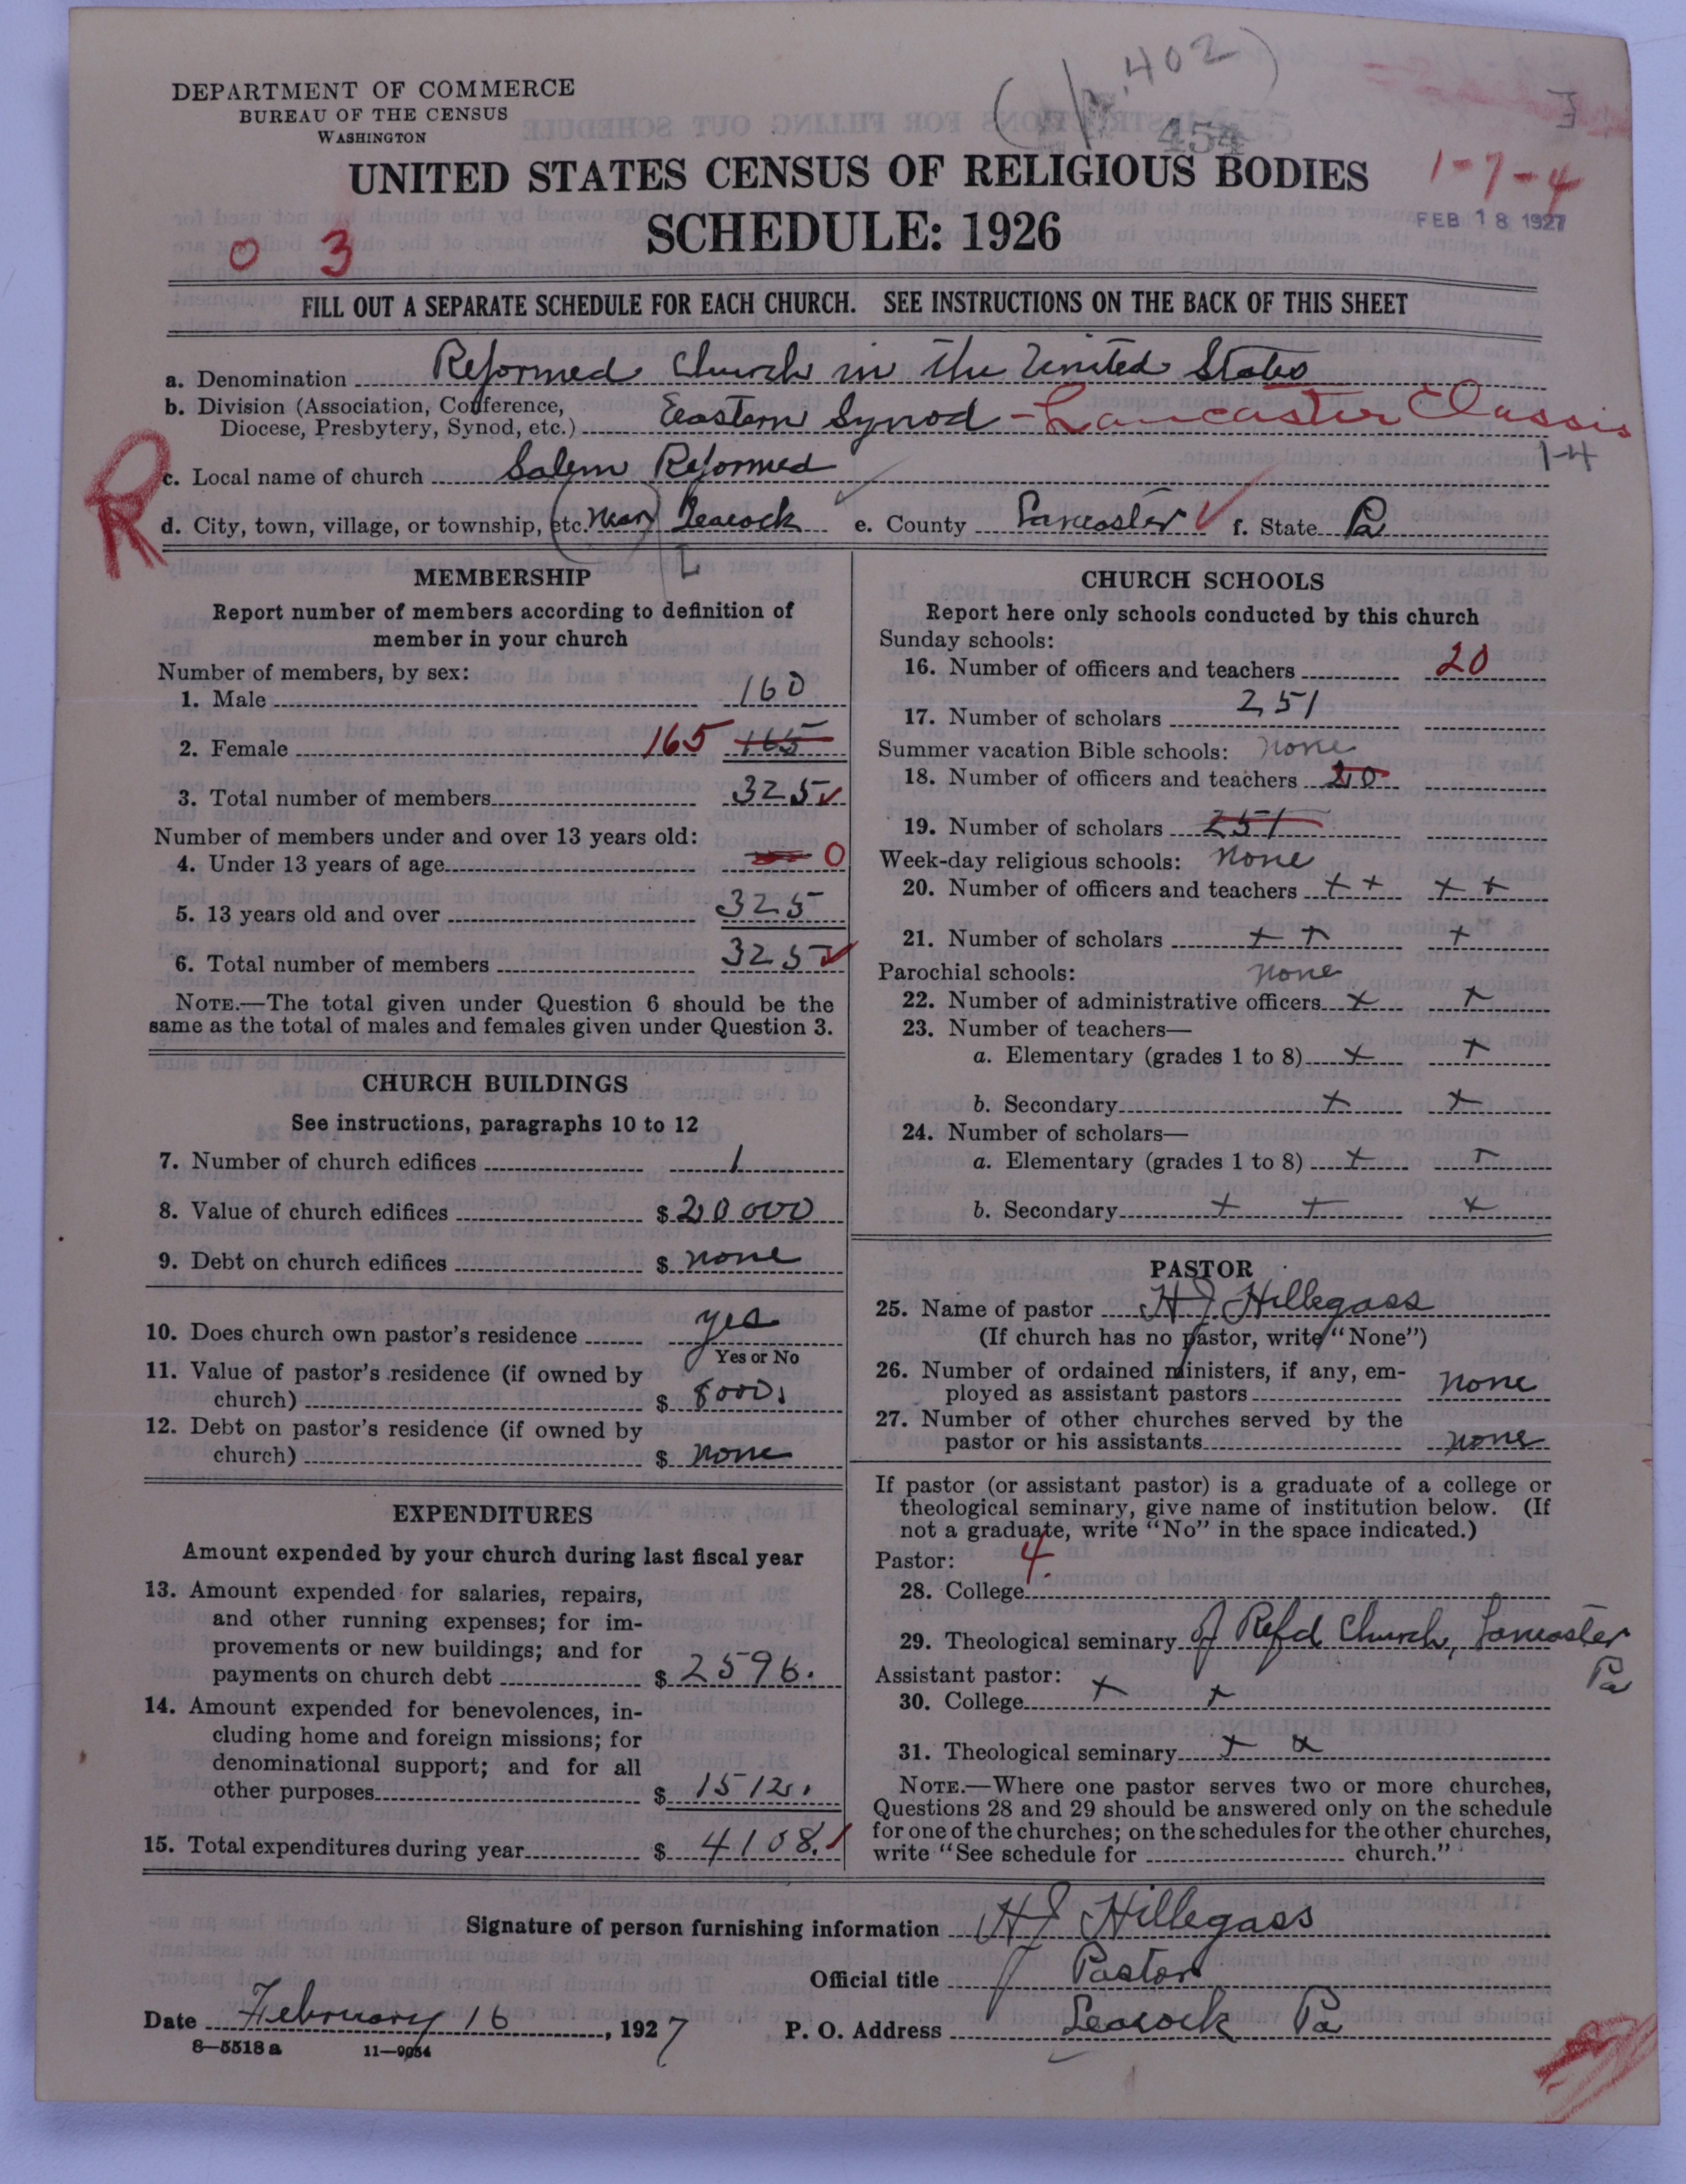 DEPARTMENT OF COMMERCE
BUREAU OF THE CENSUS
WASHINGTON
402
454
UNITED STATES CENSUS OF RELIGIOUS BODIES
1-7-4
SCHEDULE: 1926
FEB 18 1927
0 3
FILL OUT A SEPARATE SCHEDULE FOR EACH CHURCH. SEE INSTRUCTIONS ON THE BACK OF THIS SHEET
a. Denomination Reformed Church in the United States
b. Division (Association, Conference,
Diocese, Presbytery, Synod, etc.) Eastern Synod - Lancaster Classis
1-4
R
c. Local name of church Salem Reformed
d. City, town, village, or township, etc. (near) Leacock e. County Lancaster f. State Pa
L
MEMBERSHIP
Report number of members according to definition of
member in your church
Number of members, by sex:
1. Male 160
2. Female 165 165
3. Total number of members 325
Number of members under and over 13 years old:
4. Under 13 years of age 0
5. 13 years old and over 325
6. Total number of members 325
NOTE.—The total given under Question 6 should be the
same as the total of males and females given under Question 3.
CHURCH BUILDINGS
See instructions, paragraphs 10 to 12
7. Number of church edifices 1
8. Value of church edifices $ 20 000
9. Debt on church edifices $ none
10. Does church own pastor's residence yes
Yes or No
11. Value of pastor's residence (if owned by
church) $ 8000.
12. Debt on pastor's residence (if owned by
church) $ none
EXPENDITURES
Amount expended by your church during last fiscal year
13. Amount expended for salaries, repairs,
and other running expenses; for im-
provements or new buildings; and for
payments on church debt $ 2596.
14. Amount expended for benevolences, in-
cluding home and foreign missions; for
denominational support; and for all
other purposes $ 1512.
15. Total expenditures during year $ 4108.
CHURCH SCHOOLS
Report here only schools conducted by this church
Sunday schools:
16. Number of officers and teachers 20
17. Number of scholars 251
Summer vacation Bible schools: none
18. Number of officers and teachers 20
19. Number of scholars 251
Week-day religious schools: none
20. Number of officers and teachers + + + +
21. Number of scholars + + +
Parochial schools: none
22. Number of administrative officers + +
23. Number of teachers—
a. Elementary (grades 1 to 8) + +
b. Secondary + +
24. Number of scholars—
a. Elementary (grades 1 to 8) + +
b. Secondary + + +
PASTOR
25. Name of pastor H J Hillegass
(If church has no pastor, write "None")
26. Number of ordained ministers, if any, em-
ployed as assistant pastors none
27. Number of other churches served by the
pastor or his assistants none
If pastor (or assistant pastor) is a graduate of a college or
theological seminary, give name of institution below. (If
not a graduate, write "No" in the space indicated.)
Pastor: 4
28. College
29. Theological seminary of Refd Church, Lancaster
Pa
Assistant pastor:
30. College + +
31. Theological seminary + +
NOTE.—Where one pastor serves two or more churches,
Questions 28 and 29 should be answered only on the schedule
for one of the churches; on the schedules for the other churches,
write "See schedule for church."
Signature of person furnishing information H J Hillegass
Official title Pastor
Date February 16, 1927 P. O. Address Leacock Pa
8—5518a 11—9054